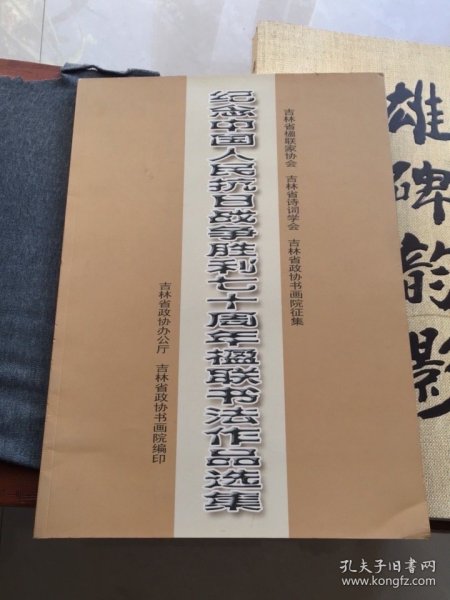 吉林省楹联家协会 吉林省诗词学会 吉林省政协书画院征集
纪念中国人民抗日战争胜利七十周年楹联书法作品选集
吉林省政协办公厅 吉林省政协书画院编印
雄碑韵影
孔夫子旧书网
www.kongfz.com